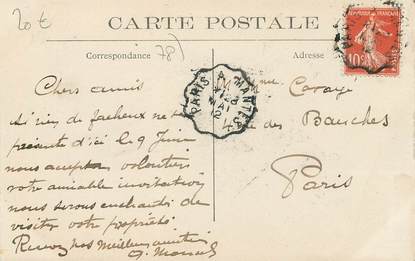 20 €
CARTE POSTALE
Correspondance
78)
Adresse
RÉPUBLIQUE FRANÇAISE
10
PARIS A MANTES
Chers amis
Si rien de facheux ne se
présente d'ici le 9 Juin
nous acceptons volontiers
votre aimable invitation
nous serons enchantés de
visiter votre propriété
Recevez nos meilleures amitiés
des Bauches
Paris